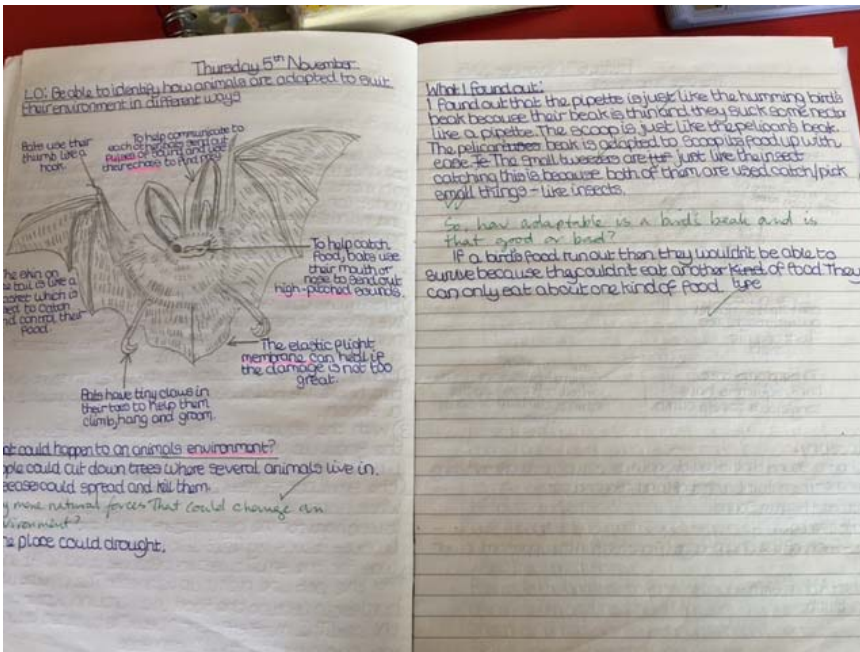 Thursday 5th November
LO: Be able to identify how animals are adapted to suit
their environment in different ways
Bats use their
thumb like a
hook.
To help communicate to
each other, bats send out
pulses of sound and use
their echoes to find prey.
To help catch
food, bats use
their mouth or
nose to send out
high-pitched sounds.
he skin on
e tail is like a
asket which is
sed to catch
nd control their
food.
The elastic flight
membrane can heal if
the damage is not too
great.
Bats have tiny claws in
their toes to help them
climb, hang and groom.
at could happen to an animals environment?
ople could cut down trees where several animals live in.
sease could spread and kill them.
y more natural forces that could change an
vironment?
he place could drought.
What I found out:
I found out that the pipette is just like the humming bird's
beak because their beak is thin and they suck some nectar
like a pipette. The scoop is just like the pelican's beak.
The pelican beak is adapted to scoop its food up with
ease. The small tweezers are just like the insect
catching this is because both of them are used catch/pick
small things - like insects.
So, how adaptable is a bird's beak and is
that good or bad?
If a bird's food run out then they wouldn't be able to
survive because they couldn't eat another kind of food. They
can only eat about one kind of food. type